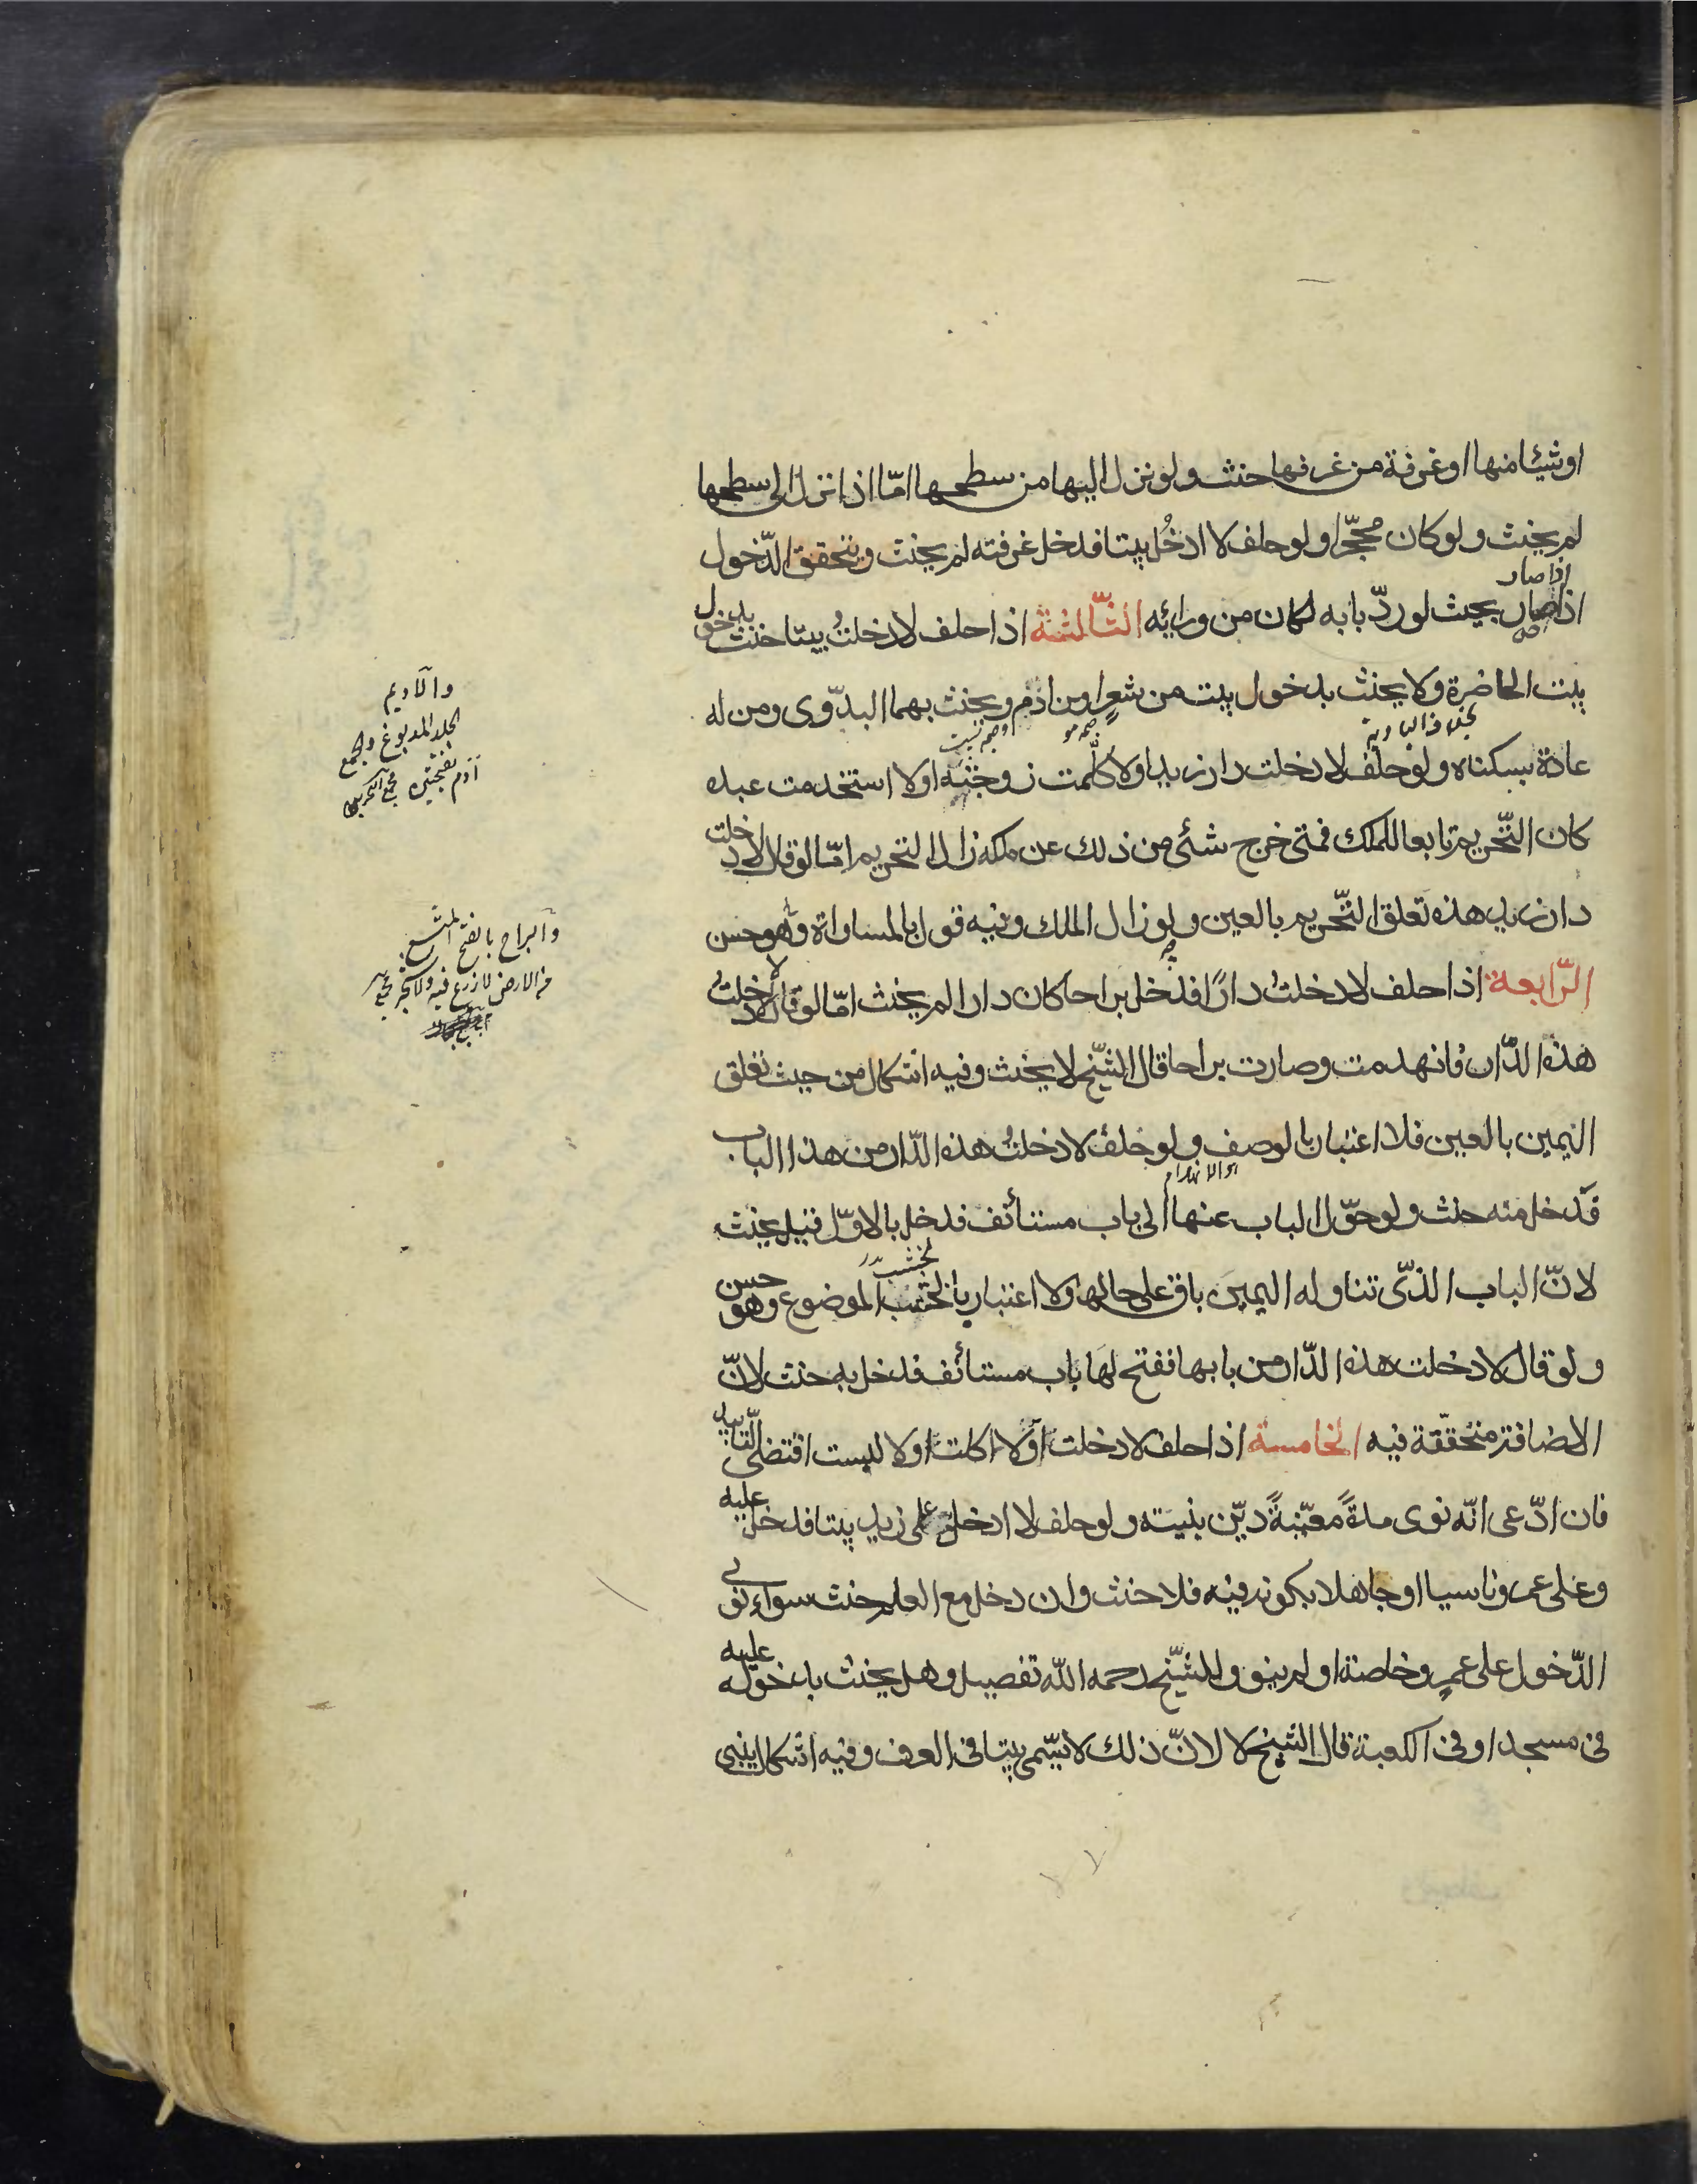 او شيئا منها او غرفة من غرفها حنث ولو نزل اليها من سطحها امّا اذا نزل الى سطحها
لم يحنث ولو كان محجّرا ولو حلف لا ادخُل بيتا فدخل غرفته لم يحنث ويتحقق الدّخول
اذا صار
اذا صار بحيث لو ردّ بابه لكان من ورائه الثّالثة اذا حلف لا دخلتُ بيتا حنث بدخول
بيت الحاضرة ولا يحنث بدخول بيت من شعرٍ او من ادم ويحنث بهما البدّوى ومن له
عادة بسكناه ولو حلف لا دخلت دار زيد او لا كلّمت زوجته او لا استخدمت عبده
كان التّحريم تابعا للملك فمتى خرج شئ من ذلك عن ملكه زال التحريم امّا لو قال لا دخلت
دار زيد هذه تعلق التّحريم بالعين ولو زال الملك وفيه قول بالمساواة وهو حسن
الرّابعة اذا حلف لا دخلتُ دارًا فدخل براحا كان دارا لم يحنث امّا لو قال لا دخلتُ
هذه الدّار فانهدمت وصارت براحا قال الشّيخ لا يحنث وفيه اشكال من حيث تعلق
اليمين بالعين فلا اعتبار بالوصف ولو حلف لا دخلتُ هذه الدّار من هذا الباب
فدخل منه حنث ولو حوّل الباب عنها الى باب مستأنف فدخل بالاوّل قيل يحنث
لانّ الباب الذّى تناوله اليمين باق على حاله ولا اعتبار بالخشب الموضوع وهو حسن
ولو قال لا دخلت هذه الدّار من بابها ففتح لها باب مستأنف فدخل به حنث لانّ
الاضافة متحقّقة فيه الخامسة اذا حلف لا دخلت او لا اكلت او لا لبست اقتضى التّابيد
فان ادّعى انّه نوى مدةً معيّنةً ديّن بنيته ولو حلف لا ادخل على زيد بيتا فدخل عليه
وعلى عمرو ناسيا او جاهلا بكونه فيه فلا حنث وان دخل مع العلم حنث سواء نوى
الدّخول على عمرٍو خاصة او لم ينو وللشّيخ رحمه الله تفصيل وهل يحنث بدخوله عليه
فى مسجد او فى الكعبة قال الشيخ لا لانّ ذلك لا يسّمى بيتا فى العرف وفيه اشكال يبنى
والاديم
الجلد المدبوغ والجمع
أدم بفتحتين مجمع البحرين
والبراح بالفتح المتسع
من الارض لا زرع فيه ولا شجر